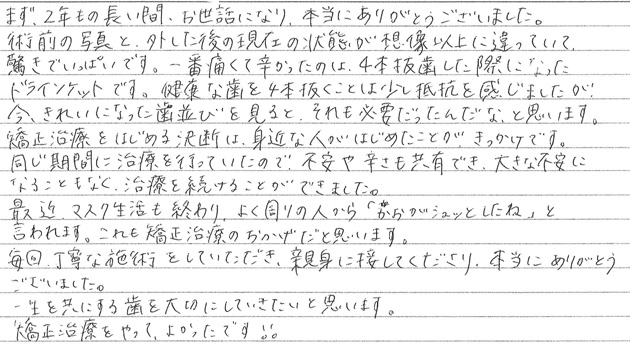 まず、2年もの長い間、お世話になり、本当にありがとうございました。
術前の写真と、外した後の現在の状態が想像以上に違っていて、
驚きでいっぱいです。一番痛くて辛かったのは、4本抜歯した際になった
ドライソケットです。健康な歯を4本抜くことは少し抵抗を感じましたが、
今、きれいになった歯並びを見ると、それも必要だったんだな、と思います。
矯正治療をはじめる決断は、身近な人がはじめたことがきっかけです。
同じ期間に治療を行っていたので、不安や辛さも共有でき、大きな不安に
なることもなく、治療を続けることができました。
最近、マスク生活も終わり、よく周りの人から「お顔がシュッとしたね」と
言われます。これも矯正治療のおかげだと思います。
毎回、丁寧な施術をしていただき、親身に接してくださり、本当にありがとう
ございました。
一生を共にする歯を大切にしていきたいと思います。
矯正治療をやって、よかったです!!